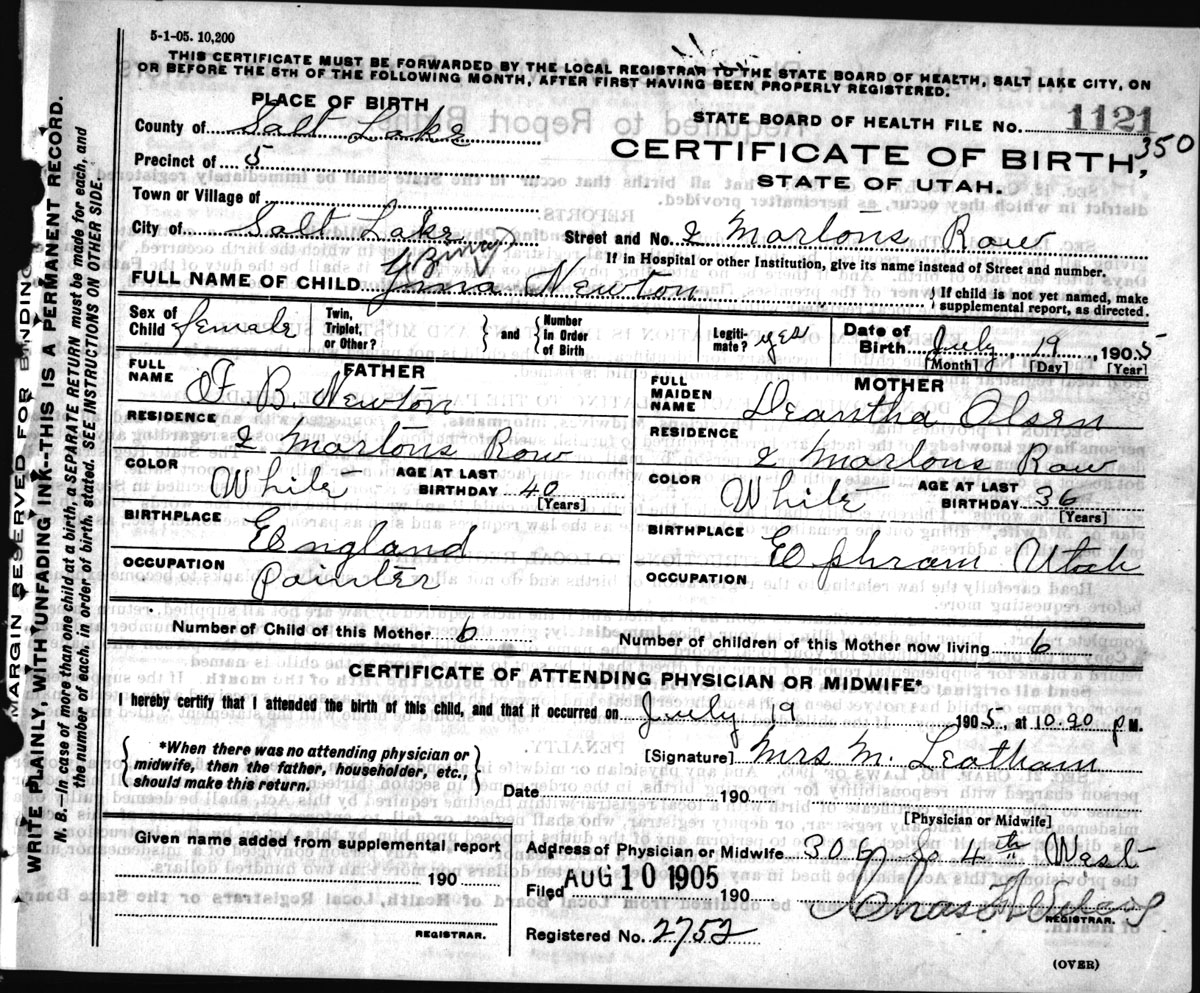 5-1-05. 10,200
THIS CERTIFICATE MUST BE FORWARDED BY THE LOCAL REGISTRAR TO THE STATE BOARD OF HEALTH, SALT LAKE CITY, ON
OR BEFORE THE 5TH OF THE FOLLOWING MONTH, AFTER FIRST HAVING BEEN PROPERLY REGISTERED.
PLACE OF BIRTH
STATE BOARD OF HEALTH FILE No. 1121
350
County of Salt Lake
CERTIFICATE OF BIRTH,
Precinct of 5
STATE OF UTAH.
Town or Village of
City of Salt Lake Street and No. 2 Martons Row
If in Hospital or other Institution, give its name instead of Street and number.
FULL NAME OF CHILD Newton
If child is not yet named, make
supplemental report, as directed.
Sex of Child female Twin, Triplet, or Other? and Number In Order of Birth Legiti-mate? yes Date of Birth July 19 1905
[Month] [Day] [Year]
FATHER
FULL NAME F B Newton
RESIDENCE 2 Martons Row
COLOR White AGE AT LAST BIRTHDAY 40
[Years]
BIRTHPLACE England
OCCUPATION Painter
MOTHER
FULL MAIDEN NAME Deantha Olsen
RESIDENCE 2 Martons Row
COLOR White AGE AT LAST BIRTHDAY 36
[Years]
BIRTHPLACE Ephram Utah
OCCUPATION
Number of Child of this Mother 6 Number of children of this Mother now living 6
CERTIFICATE OF ATTENDING PHYSICIAN OR MIDWIFE*
I hereby certify that I attended the birth of this child, and that it occurred on July 19 1905, at 10.20 P M.
*When there was no attending physician or
midwife, then the father, householder, etc.,
should make this return.
[Signature] Mrs M. Leatham
Date 190
[Physician or Midwife]
Given name added from supplemental report
190
REGISTRAR.
Address of Physician or Midwife 30 4th West
Filed AUG 10 1905 190
REGISTRAR.
Registered No. 2752
(OVER)
MARGIN RESERVED FOR BINDING
WRITE PLAINLY, WITH UNFADING INK--THIS IS A PERMANENT RECORD.
N. B.--In case of more than one child at a birth, a SEPARATE RETURN must be made for each, and
the number of each, in order of birth, stated. SEE INSTRUCTIONS ON OTHER SIDE.